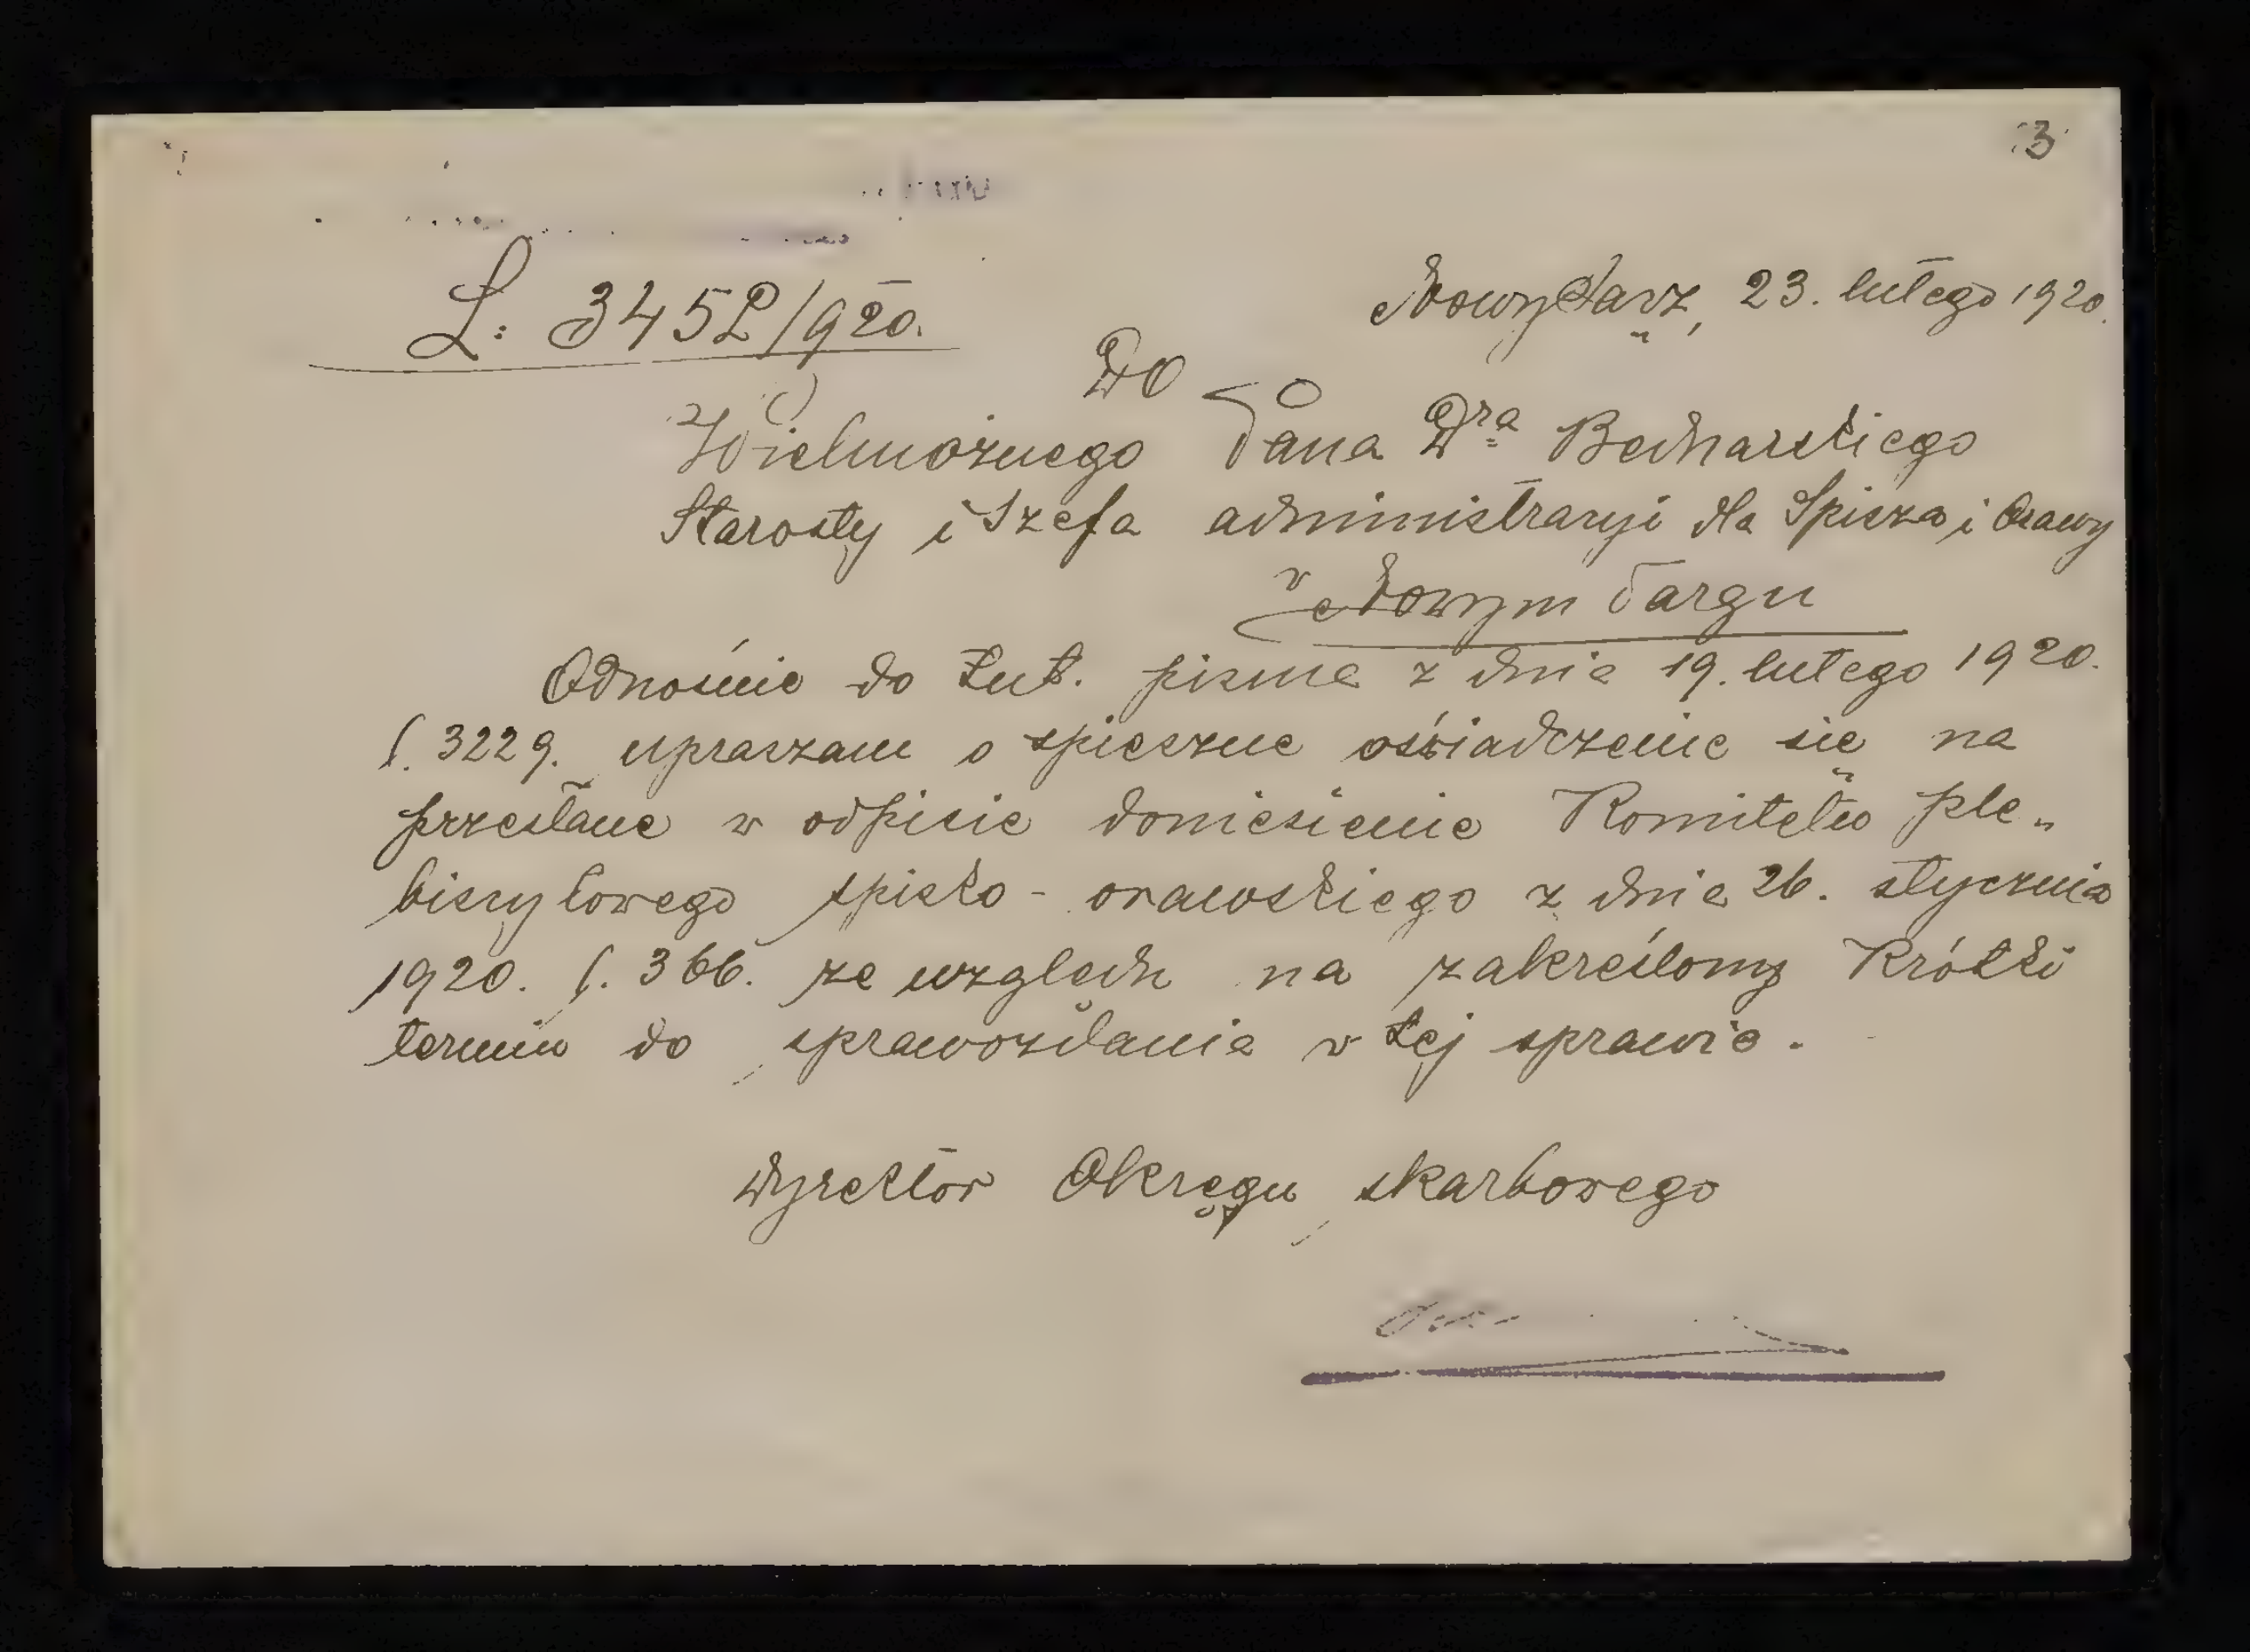 3
L: 3452/920.
Nowy Sącz, 23. lutego 1920.
Do
Wielmożnego Pana Dra Bednarskiego
Starosty i Szefa administracyi dla Spisza i Orawy
w Nowym Targu
Odnośnie do tut. pisma z dnia 19. lutego 1920.
l. 3229. upraszam o spieszne oświadczenie się na
przesłane w odpisie doniesienie Komitetu ple„
biscytowego spisko - orawskiego z dnia 26. stycznia
1920. l. 366. ze względu na zakreślony krótki
termin do sprawozdania w tej sprawie.
Dyrektor Okręgu skarbowego